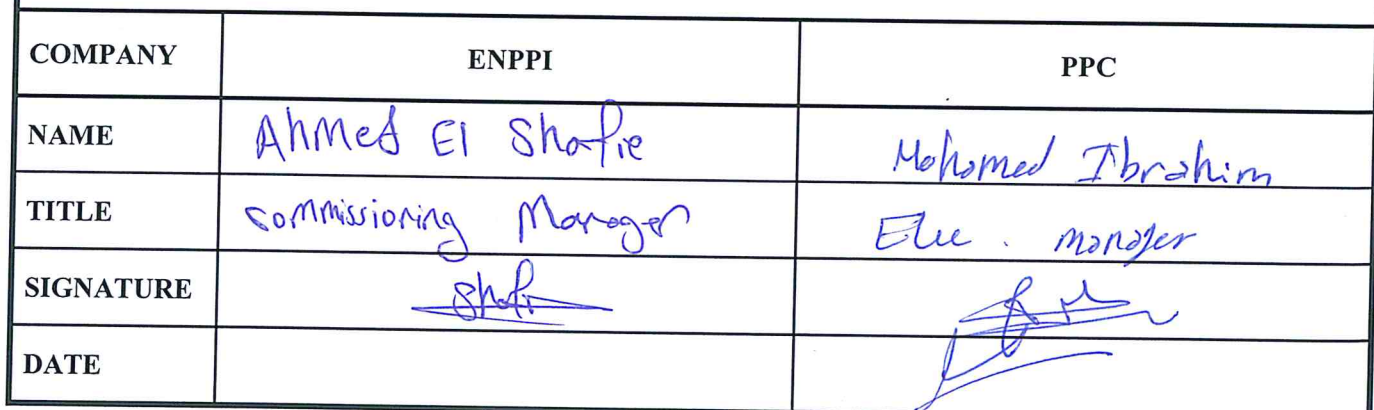 COMPANY ENPPI PPC
NAME Ahmed El Shafie Mohamed Ibrahim
TITLE Commissioning Manager Elec. manager
SIGNATURE Shafi
DATE